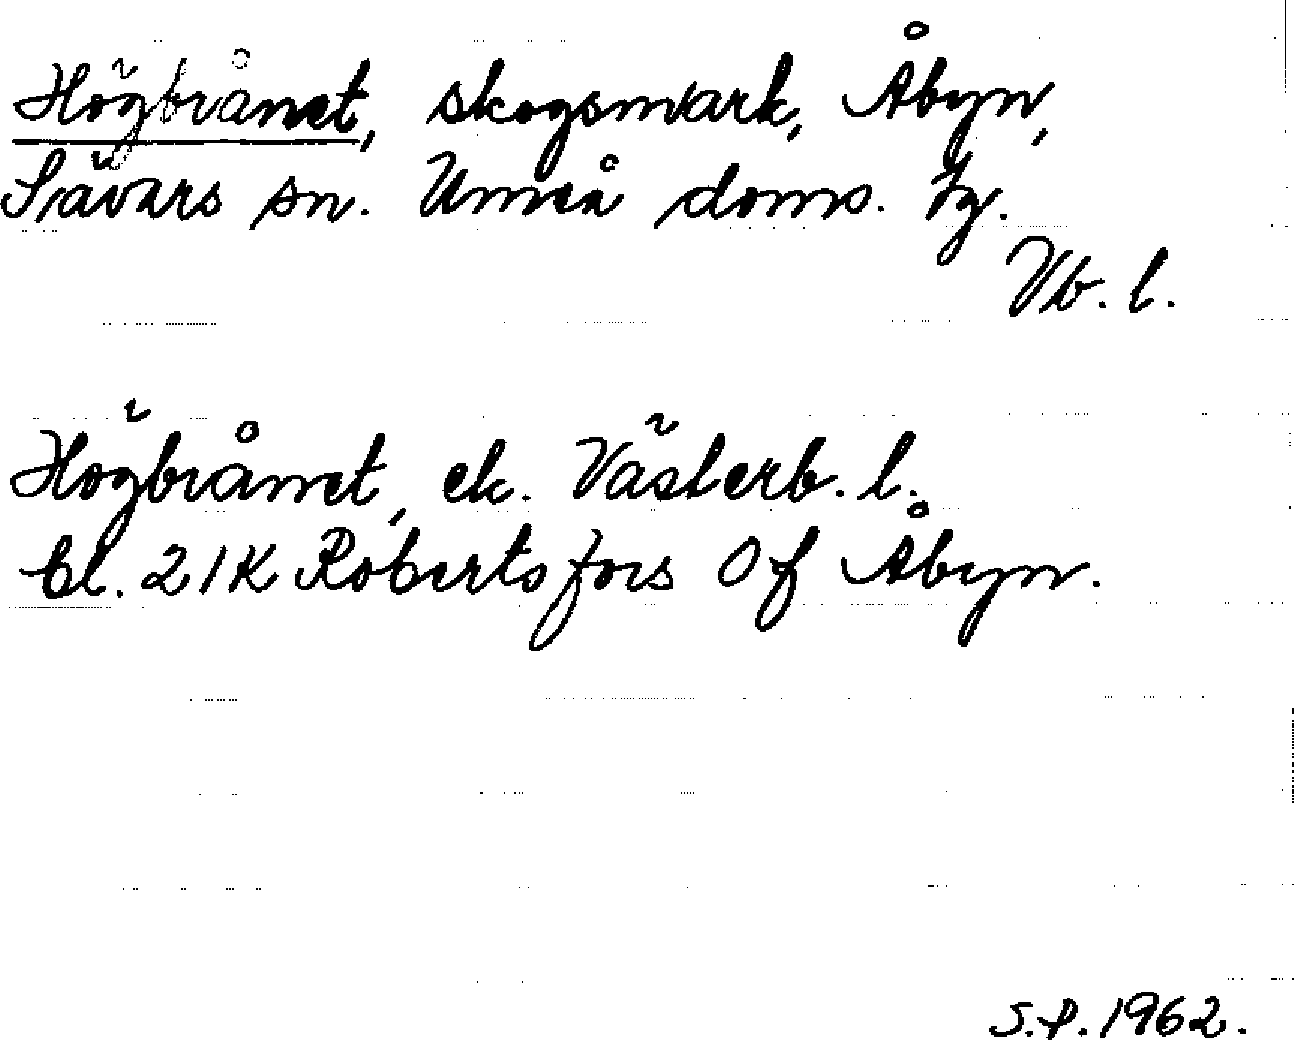 Högbrånet, skogsmark, Åbyn,
Sävars sn. Umeå doms. tg.
Vb. l.
Högbrånet, ek. Västerb. l.
Bl. 21K Robertsfors Of Åbyn.
S.P. 1962.